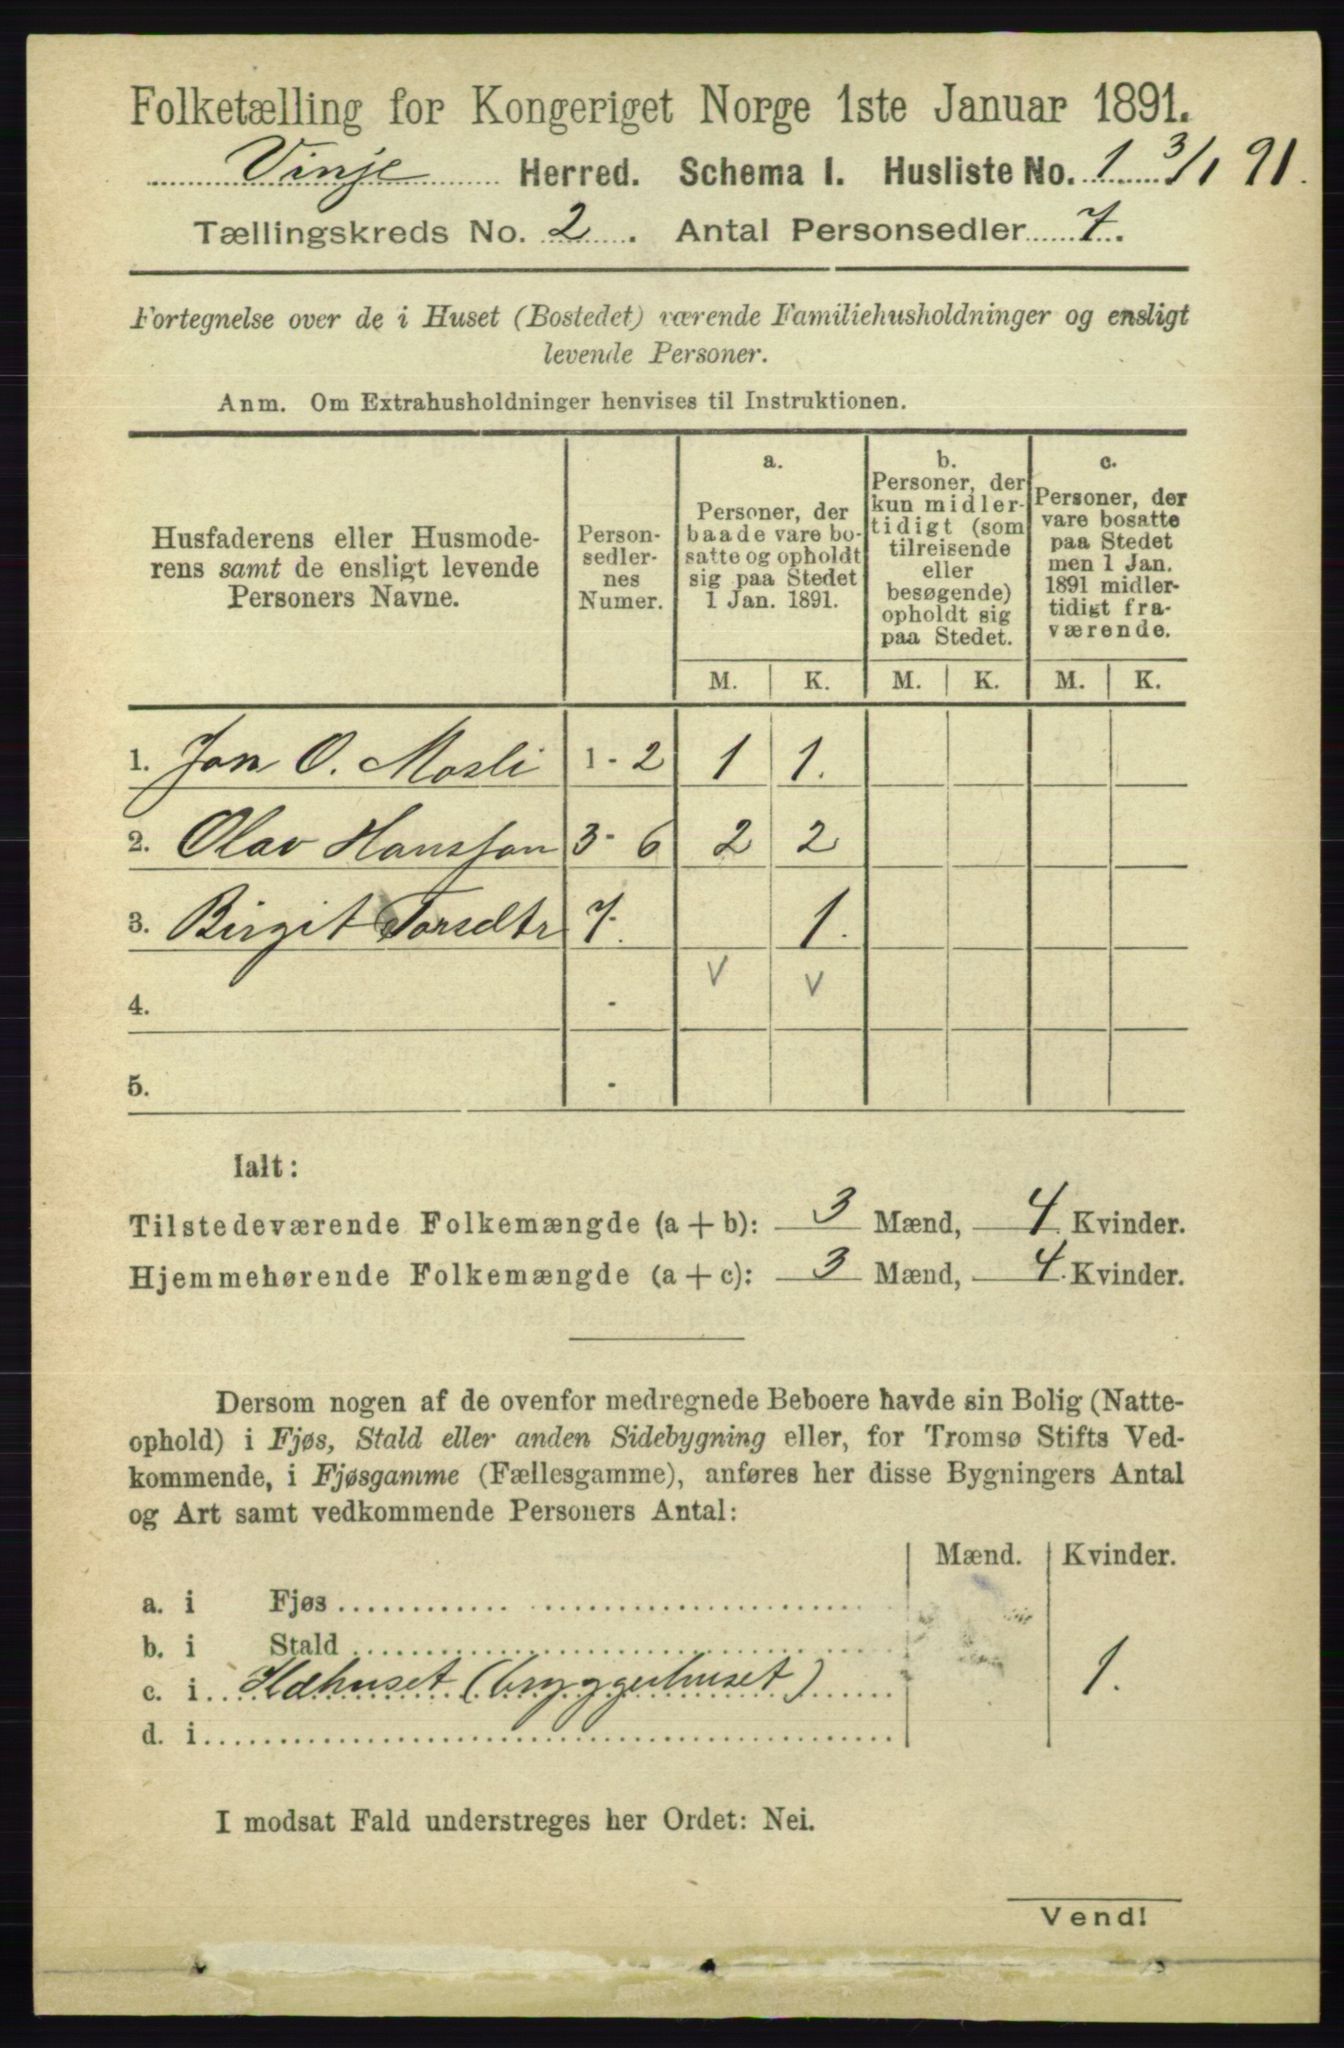 Folketælling for Kongeriget Norge 1ste Januar 1891.
Vinje Herred. Schema I. Husliste No. 1 3/1 91.
Tællingskreds No. 2. Antal Personsedler 7.
Fortegnelse over de i Huset (Bostedet) værende Familiehusholdninger og ensligt
levende Personer.
Anm. Om Extrahusholdninger henvises til Instruktionen.
Husfaderens eller Husmode-
rens samt de ensligt levende
Personers Navne.
Person-
sedler-
nes
Numer.
a.
Personer, der
baade vare bo-
satte og opholdt
sig paa Stedet
1 Jan. 1891.
b.
Personer, der
kun midler-
tidigt (som
tilreisende
eller
besøgende)
opholdt sig
paa Stedet.
c.
Personer, der
vare bosatte
paa Stedet
men 1 Jan.
1891 midler-
tidigt fra-
værende.
M. K. M. K. M. K.
1. Jon O. Mosli 1 - 2 1 1.
2. Olav Hansson 3 - 6 2 2
3. Birgit Torsdtr 7. 1.
V V
4. -
5. -
Ialt:
Tilstedeværende Folkemængde (a + b): 3 Mænd, 4 Kvinder.
Hjemmehørende Folkemængde (a + c): 3 Mænd, 4. Kvinder.
Dersom nogen af de ovenfor medregnede Beboere havde sin Bolig (Natte-
ophold) i Fjøs, Stald eller anden Sidebygning eller, for Tromsø Stifts Ved-
kommende, i Fjøsgamme (Fællesgamme), anføres her disse Bygningers Antal
og Art samt vedkommende Personers Antal:
Mænd. Kvinder.
a. i Fjøs
b. i Stald
c. i Ildhuset (bryggerhuset) 1.
d. i
I modsat Fald understreges her Ordet: Nei.
Vend!